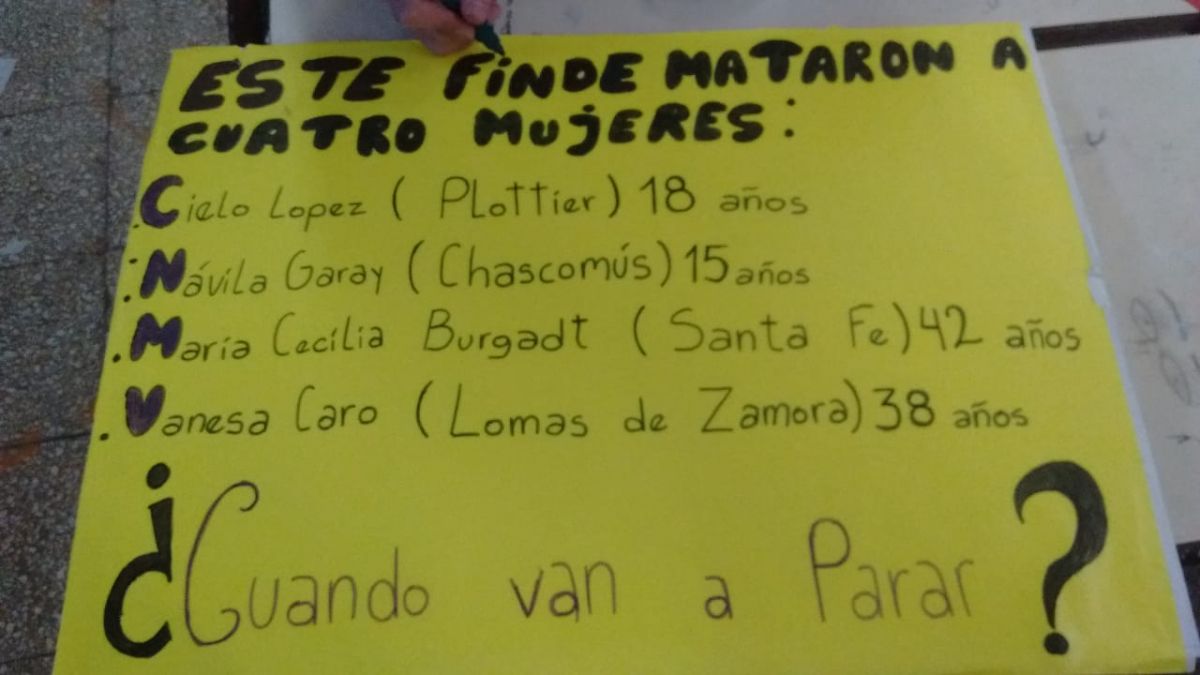 ESTE FiNDE MATARON A
CUATRO MUjERES:
. Cielo Lopez ( PLottier) 18 años
. Návila Garay (Chascomús) 15 años
. María Cecilia Burgadt (Santa Fe) 42 años
. Vanesa Caro (Lomas de Zamora) 38 años
¿Cuando van a Parar?